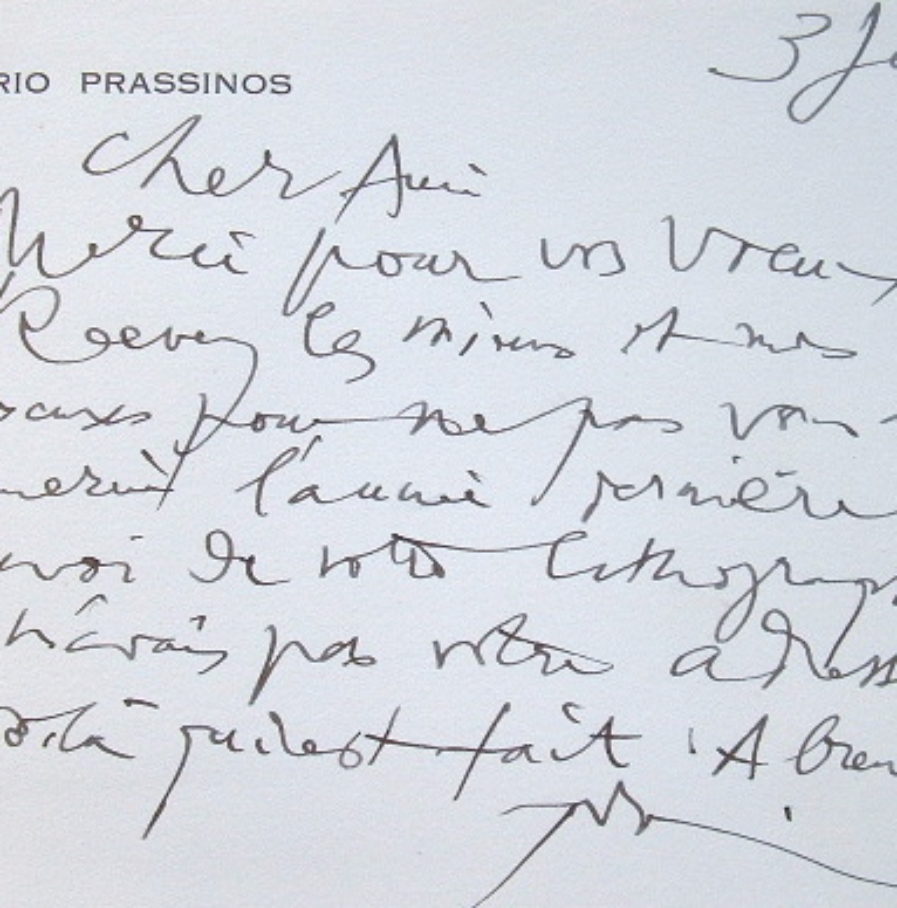 RIO PRASSINOS
3 Ja
Cher Ami
Merci pour vos vœux
Recevez les miens et mes
pour ne pas vous
l'année dernière
de votre lithograp
n'avais pas votre adress
oilà qui est fait. A bien